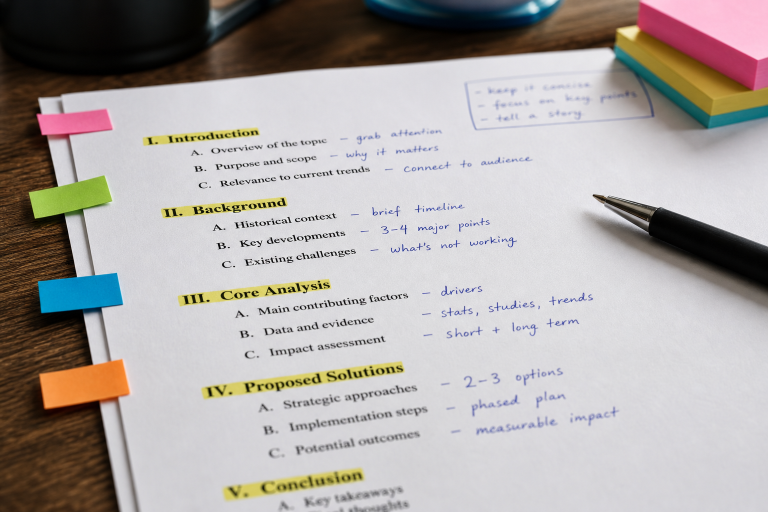 - keep it concise
- focus on key points
- tell a story
I. Introduction
A. Overview of the topic - grab attention
B. Purpose and scope - why it matters
C. Relevance to current trends - connect to audience
II. Background
A. Historical context - brief timeline
B. Key developments - 3-4 major points
C. Existing challenges - what's not working
III. Core Analysis
A. Main contributing factors - drivers
B. Data and evidence - stats, studies, trends
C. Impact assessment - short + long term
IV. Proposed Solutions
A. Strategic approaches - 2-3 options
B. Implementation steps - phased plan
C. Potential outcomes - measurable impact
V. Conclusion
A. Key takeaways
thoughts